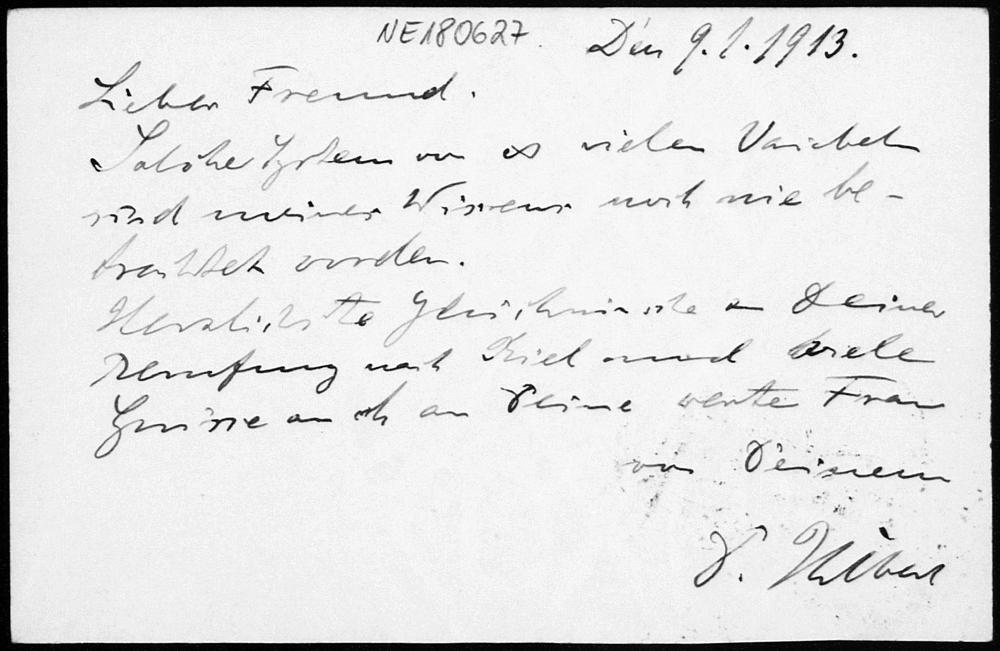 NE180627.
Den 9.1.1913.
Lieber Freund.
Solche Systeme von ∞ vielen Variabeln
sind meines Wissens noch nie be-
trachtet worden.
Herzlichste Glückwünsche zu Deiner
Berufung nach Kiel und viele
Grüsse auch an Deine werte Frau
von Deinem
D. Hilbert